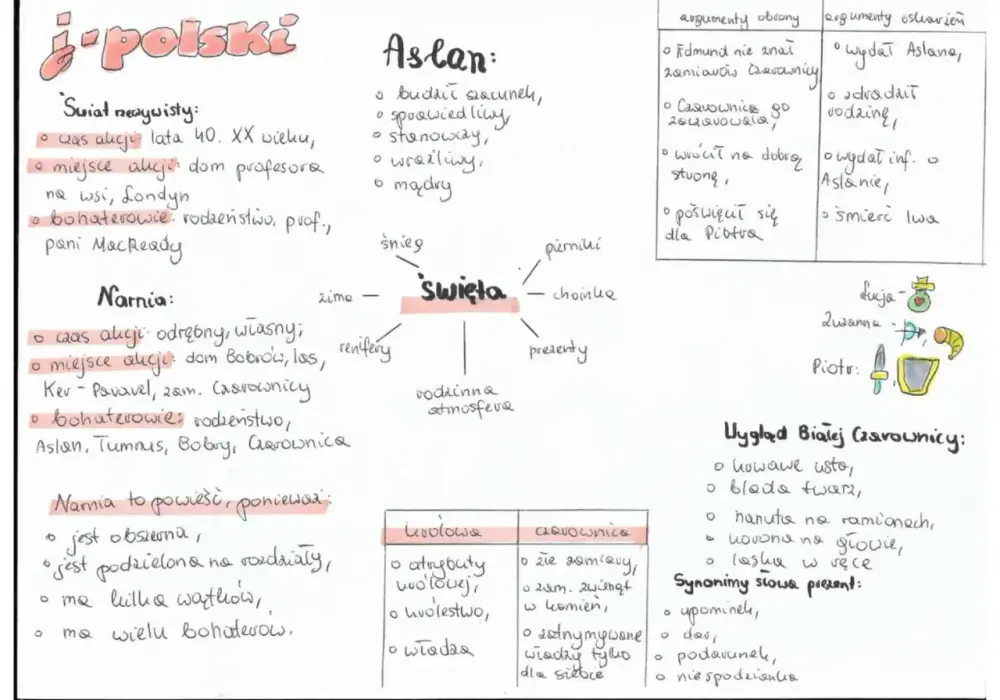 j. polski
Świat rzeczywisty:
czas akcji: lata 40. XX wieku,
miejsce akcji: dom profesora
na wsi, Londyn
bohaterowie: rodzeństwo, prof.,
pani MacReady
Narnia:
czas akcji: odrębny, własny;
miejsce akcji: dom Bobrów, las,
Ker-Paravel, zam. Czarownicy
bohaterowie: rodzeństwo,
Aslan, Tumnus, Bobry, Czarownica
Narnia to powieść, ponieważ:
jest obszerna,
jest podzielona na rozdziały,
ma kilka wątków,
ma wielu bohaterów.
Aslan:
budził szacunek,
sprawiedliwy,
stanowczy,
wrażliwy,
mądry
śnieg
pierniki
zima
święta
choinka
renifery
prezenty
rodzinna
atmosfera
królowa
atrybuty
królowej,
królestwo,
władza
czarownica
złe zamiary,
zam. zwierząt
w kamień,
zatrzymywanie
władzy tylko
dla siebie
argumenty obrony
Edmund nie znał
zamiarów Czarownicy
Czarownica go
zaczarowała,
wrócił na dobrą
stronę,
poświęcił się
dla Piotra
argumenty oskarżeń
wydał Aslana,
zdradził
rodzinę,
wydał inf. o
Aslanie,
śmierć lwa
Łucja -
Zuzanna -
Piotr:
Wygląd Białej Czarownicy:
krwawe usta,
blada twarz,
narzuta na ramionach,
korona na głowie,
laska w ręce
Synonimy słowa prezent:
upominek,
dar,
podarunek,
niespodzianka